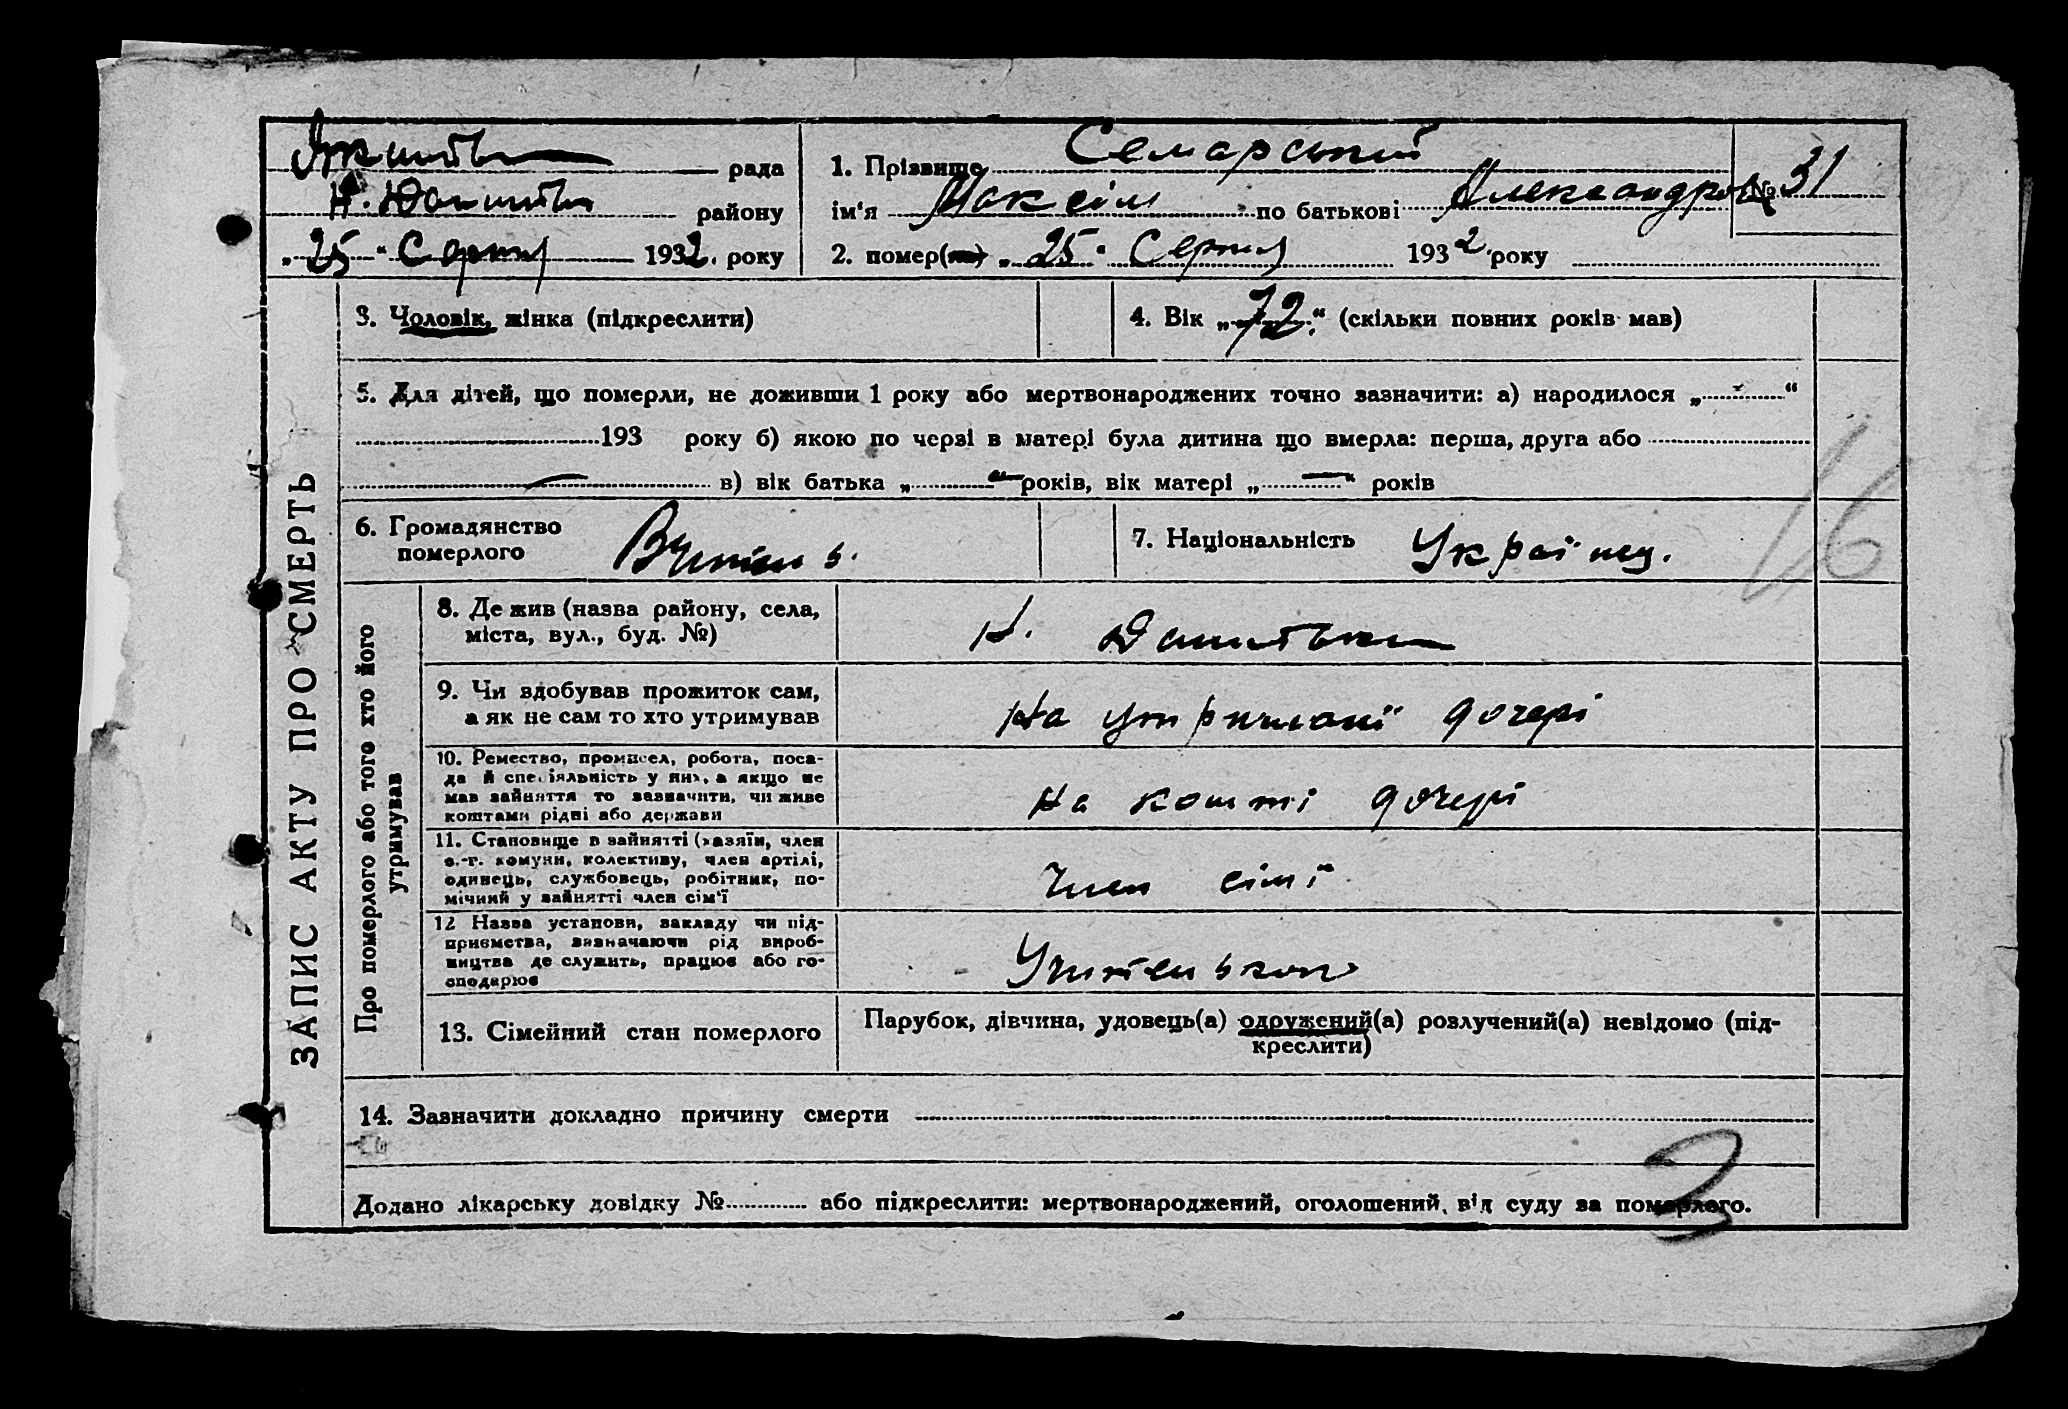 рада
району
„ 25 “ Серпня 1932. року
1. Прізвище Семарський
ім'я Максім по батькові Александров № 31
2. помер(ла) „ 25 “ Серпня 1932. року
ЗАПИС АКТУ ПРО СМЕРТЬ
3. Чоловік, жінка (підкреслити)
4. Вік „ 72 “ (скільки повних років мав)
5. Для дітей, що померли, не доживши 1 року або мертвонароджених точно зазначити: а) народилося „ “
193 року б) якою по черзі в матері була дитина що вмерла: перша, друга або
в) вік батька „ “ років, вік матері „ “ років
16
6. Громадянство
померлого
7. Національність Українец.
Про померлого або того хто його
утримував
8. Де жив (назва району, села,
міста, вул., буд. №)
Н.
9. Чи здобував прожиток сам,
а як не сам то хто утримував
На утриманні дочері
10. Ремество, промисел, робота, поса-
да й спеціяльність у них, а якщо не
мав зайняття то зазначити, чи живе
коштами рідні або держави
На кошті дочері
11. Становище в зайнятті (хазяїн, член
с.-г. комуни, колективу, член артілі,
одинець, службовець, робітник, по-
мічний у зайнятті член сім'ї
Член сімї
12 Назва установи, закладу чи під-
приємства, зазначаючи рід вироб-
ництва де служить, працює або го-
сподарює
13. Сімейний стан померлого
Парубок, дівчина, удовець(а) одружений(а) розлучений(а) невідомо (під-
креслити)
14. Зазначити докладно причину смерти
3
Додано лікарську довідку № або підкреслити: мертвонароджений, оголошений від суду за померлого.